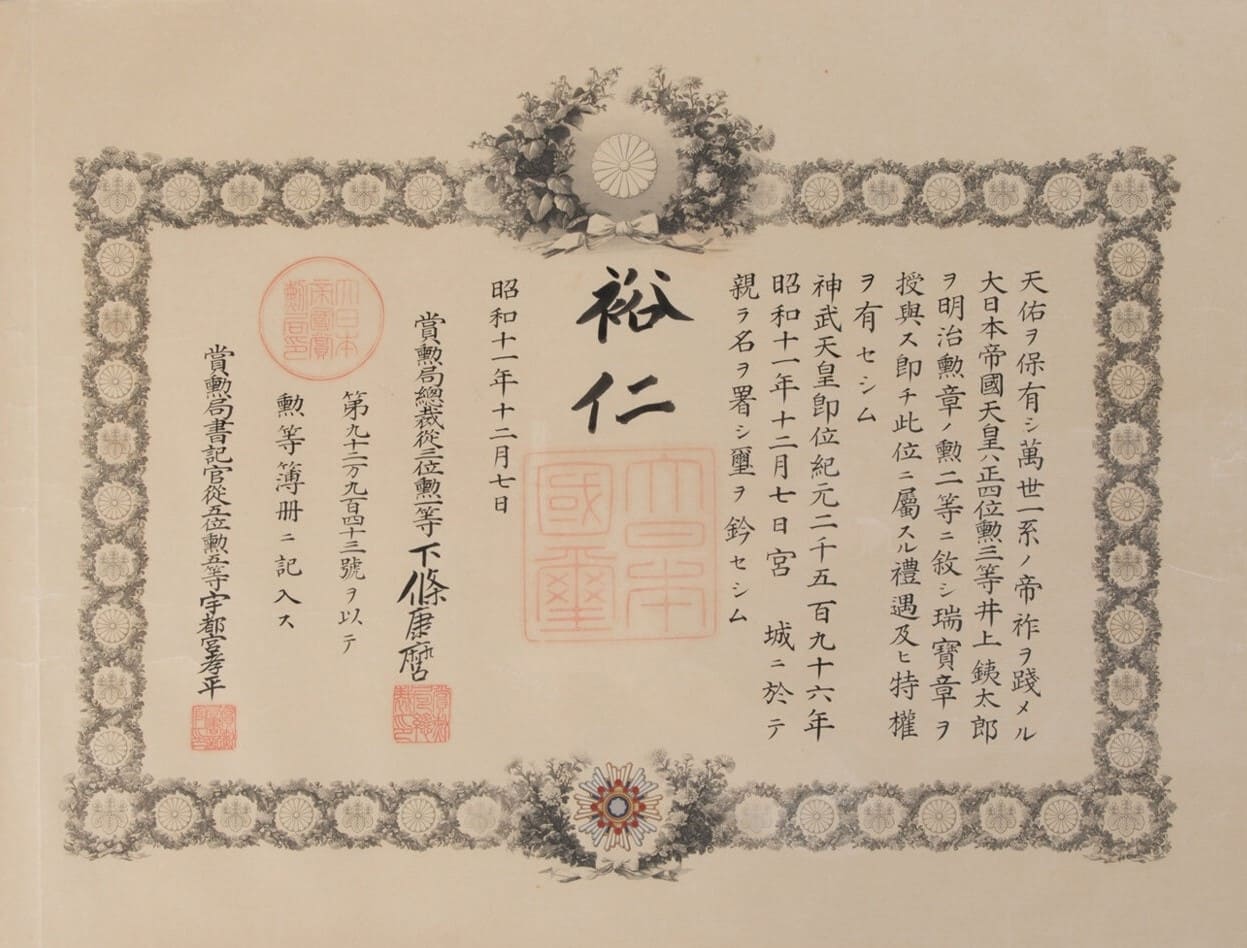 天佑ヲ保有シ萬世一系ノ帝祚ヲ踐メル
大日本帝國天皇ハ正四位勲三等井上銕太郎
ヲ明治勲章ノ勲二等ニ敘シ瑞寶章ヲ
授與ス即チ此位ニ屬スル禮遇及ヒ特權
ヲ有セシム
神武天皇即位紀元二千五百九十六年
昭和十一年十二月七日宮城ニ於テ
親ラ名ヲ署シ璽ヲ鈐セシム
裕仁
大日本
國璽
昭和十一年十二月七日
賞勲局總裁從三位勲一等下條康麿
第九十二万九百四十三號ヲ以テ
勲等簿册ニ記入ス
大日本
帝國賞
勲局印
賞勲局書記官從五位勲五等宇都宮孝平